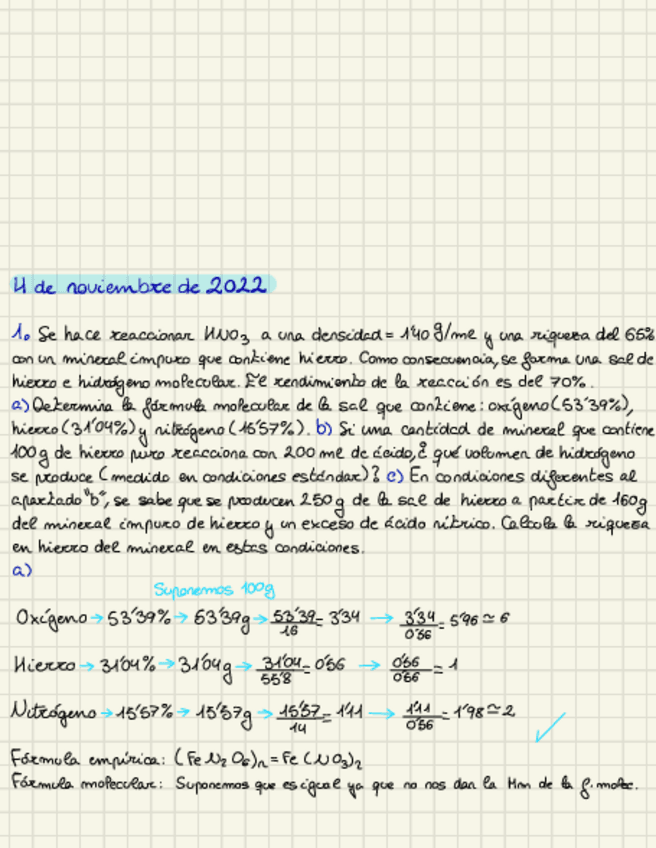 4 de noviembre de 2022
1. Se hace reaccionar HNO3 a una densidad = 1'40 g/ml y una riqueza del 65%
con un mineral impuro que contiene hierro. Como consecuencia, se forma una sal de
hierro e hidrógeno molecular. El rendimiento de la reacción es del 70%.
a) Determina la fórmula molecular de la sal que contiene: oxígeno (53'39%),
hierro (31'04%) y nitrógeno (15'57%). b) Si una cantidad de mineral que contiene
100 g de hierro puro reacciona con 200 ml de ácido, ¿ qué volumen de hidrógeno
se produce (medido en condiciones estándar)? c) En condiciones diferentes al
apartado "b", se sabe que se producen 250 g de la sal de hierro a partir de 150g
del mineral impuro de hierro y un exceso de ácido nítrico. Calcula la riqueza
en hierro del mineral en estas condiciones.
a)
Suponemos 100g
Oxígeno → 53'39% → 53'39g → 53'39/16 = 3'34 → 3'34/0'56 = 5'96 ≃ 6
Hierro → 31'04% → 31'04g → 31'04/55'8 = 0'56 → 0'56/0'56 = 1
Nitrógeno → 15'57% → 15'57g → 15'57/14 = 1'11 → 1'11/0'56 = 1'98 ≃ 2
Fórmula empírica: (Fe N2 O6)n = Fe (NO3)2
Fórmula molecular: Suponemos que es igual ya que no nos dan la Mm de la f. molec.